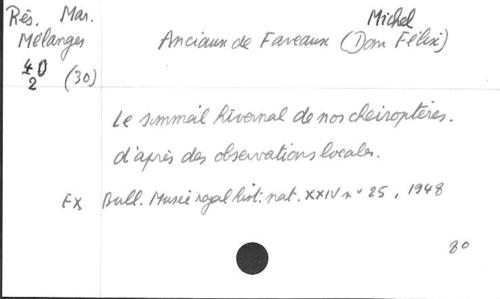 Rés. Mar.
Mélanges
40
2 (30)
Michel
Anciaux de Faveaux (Dom Félix)
Le sommeil hivernal de nos cheiroptères.
d'après des observations locales.
Ex Bull. Musée royal hist. nat. XXIV n° 25, 1948
80